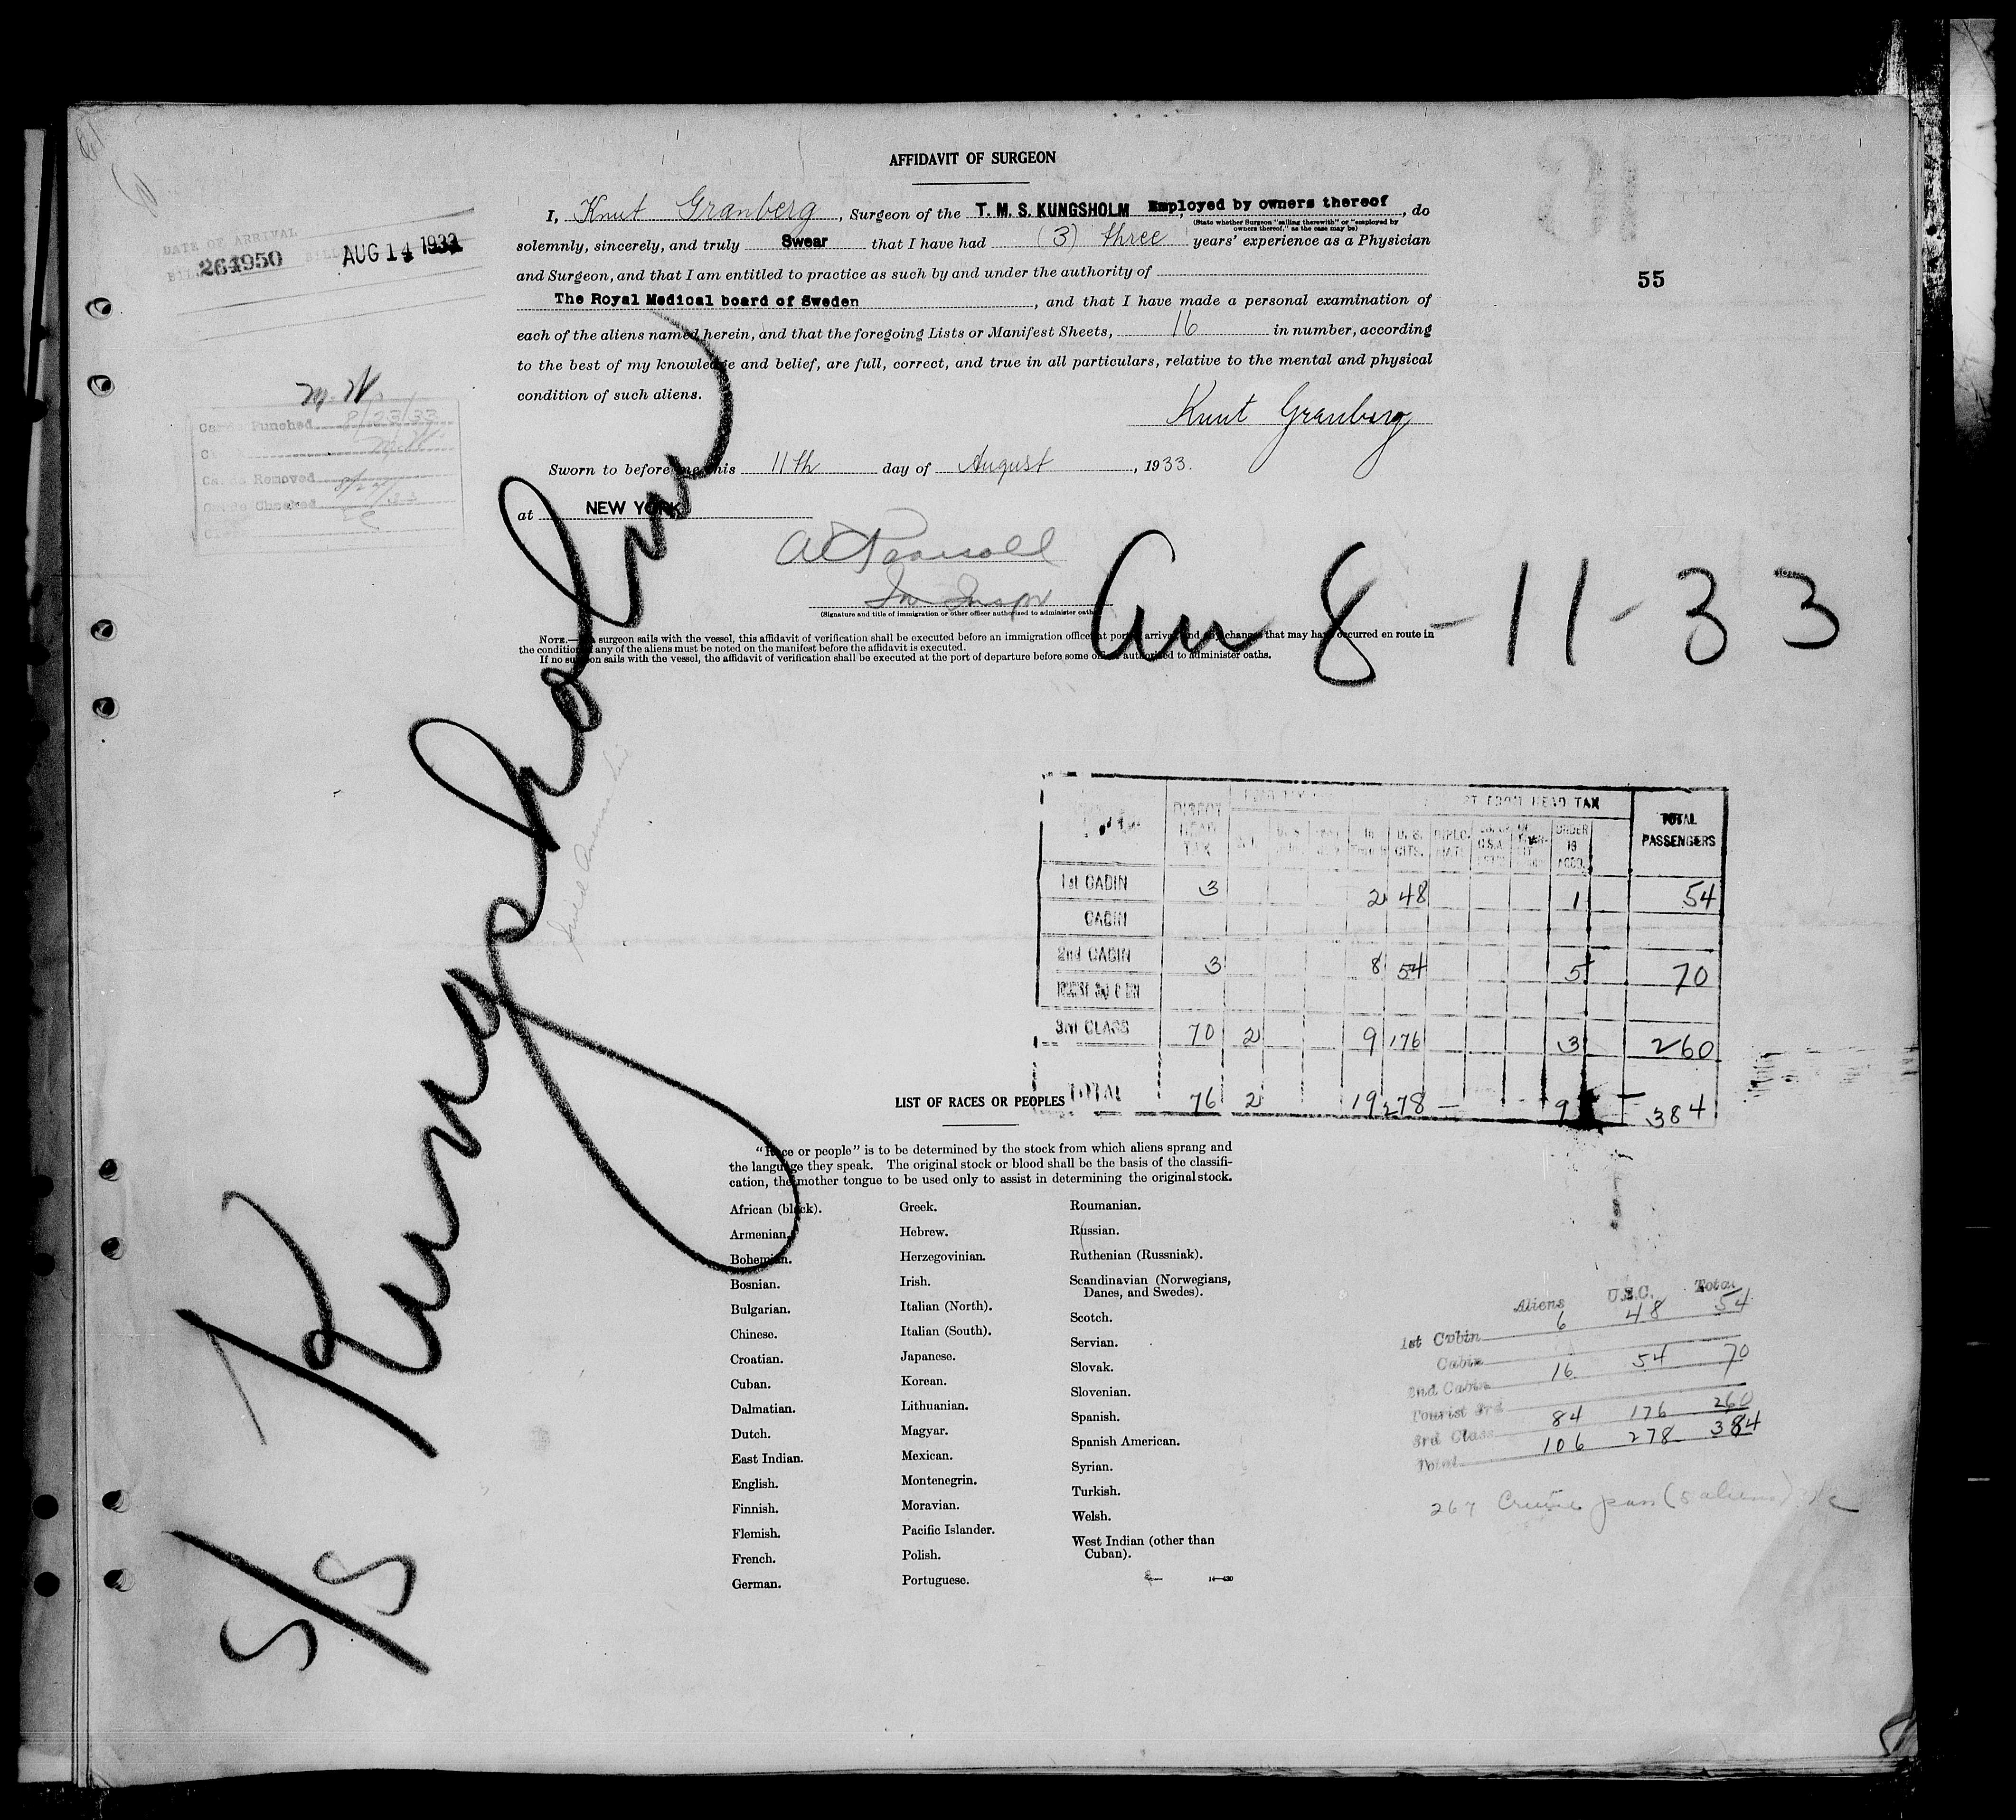 AFFIDAVIT OF SURGEON
I, Knut Granberg, Surgeon of the T. M. S. KUNGSHOLM, Employed by owners thereof, do
(State whether Surgeon "sailing therewith" or "employed by
owners thereof," as the case may be)
solemnly, sincerely, and truly Swear that I have had (3) three years' experience as a Physician
and Surgeon, and that I am entitled to practice as such by and under the authority of
The Royal Medical board of Sweden, and that I have made a personal examination of
each of the aliens named herein, and that the foregoing Lists or Manifest Sheets, 16 in number, according
to the best of my knowledge and belief, are full, correct, and true in all particulars, relative to the mental and physical
condition of such aliens.
Knut Granberg
Sworn to before me this 11th day of August, 1933.
at NEW YORK
(Signature and title of immigration or other officer authorized to administer oaths)
NOTE.—If a surgeon sails with the vessel, this affidavit of verification shall be executed before an immigration officer at port of arrival and any changes that may have occurred en route in
the condition of any of the aliens must be noted on the manifest before the affidavit is executed.
If no surgeon sails with the vessel, the affidavit of verification shall be executed at the port of departure before some officer authorized to administer oaths.
DATE OF ARRIVAL
264950
AUG 14 1933
55
M.W.
Cards Punched 8/23/33
Cards Removed
Cards Checked
Clerk
S/S Kungsholm
Arr 8-11-33
DIRECT HEAD TAX
HEAD TAX
U. S. CITS.
DIPLOMATS
UNDER 16 ACCO.
TOTAL PASSENGERS
1st CABIN 3 2 48 1 54
CABIN
2nd CABIN 3 8 54 5 70
3rd CLASS 70 2 9 176 3 260
TOTAL 76 2 19 278 — 9 — 384
LIST OF RACES OR PEOPLES
"Race or people" is to be determined by the stock from which aliens sprang and
the language they speak. The original stock or blood shall be the basis of the classifi-
cation, the mother tongue to be used only to assist in determining the original stock.
African (black).
Armenian.
Bohemian.
Bosnian.
Bulgarian.
Chinese.
Croatian.
Cuban.
Dalmatian.
Dutch.
East Indian.
English.
Finnish.
Flemish.
French.
German.
Greek.
Hebrew.
Herzegovinian.
Irish.
Italian (North).
Italian (South).
Japanese.
Korean.
Lithuanian.
Magyar.
Mexican.
Montenegrin.
Moravian.
Pacific Islander.
Polish.
Portuguese.
Roumanian.
Russian.
Ruthenian (Russniak).
Scandinavian (Norwegians,
Danes, and Swedes).
Scotch.
Servian.
Slovak.
Slovenian.
Spanish.
Spanish American.
Syrian.
Turkish.
Welsh.
West Indian (other than
Cuban).
Aliens U.S.C. Total
1st Cabin 6 48 54
Cabin
2nd Cabin 16 54 70
Tourist 3rd
3rd Class 84 176 260
Total 106 278 384
267 Cruise pass (5 aliens)